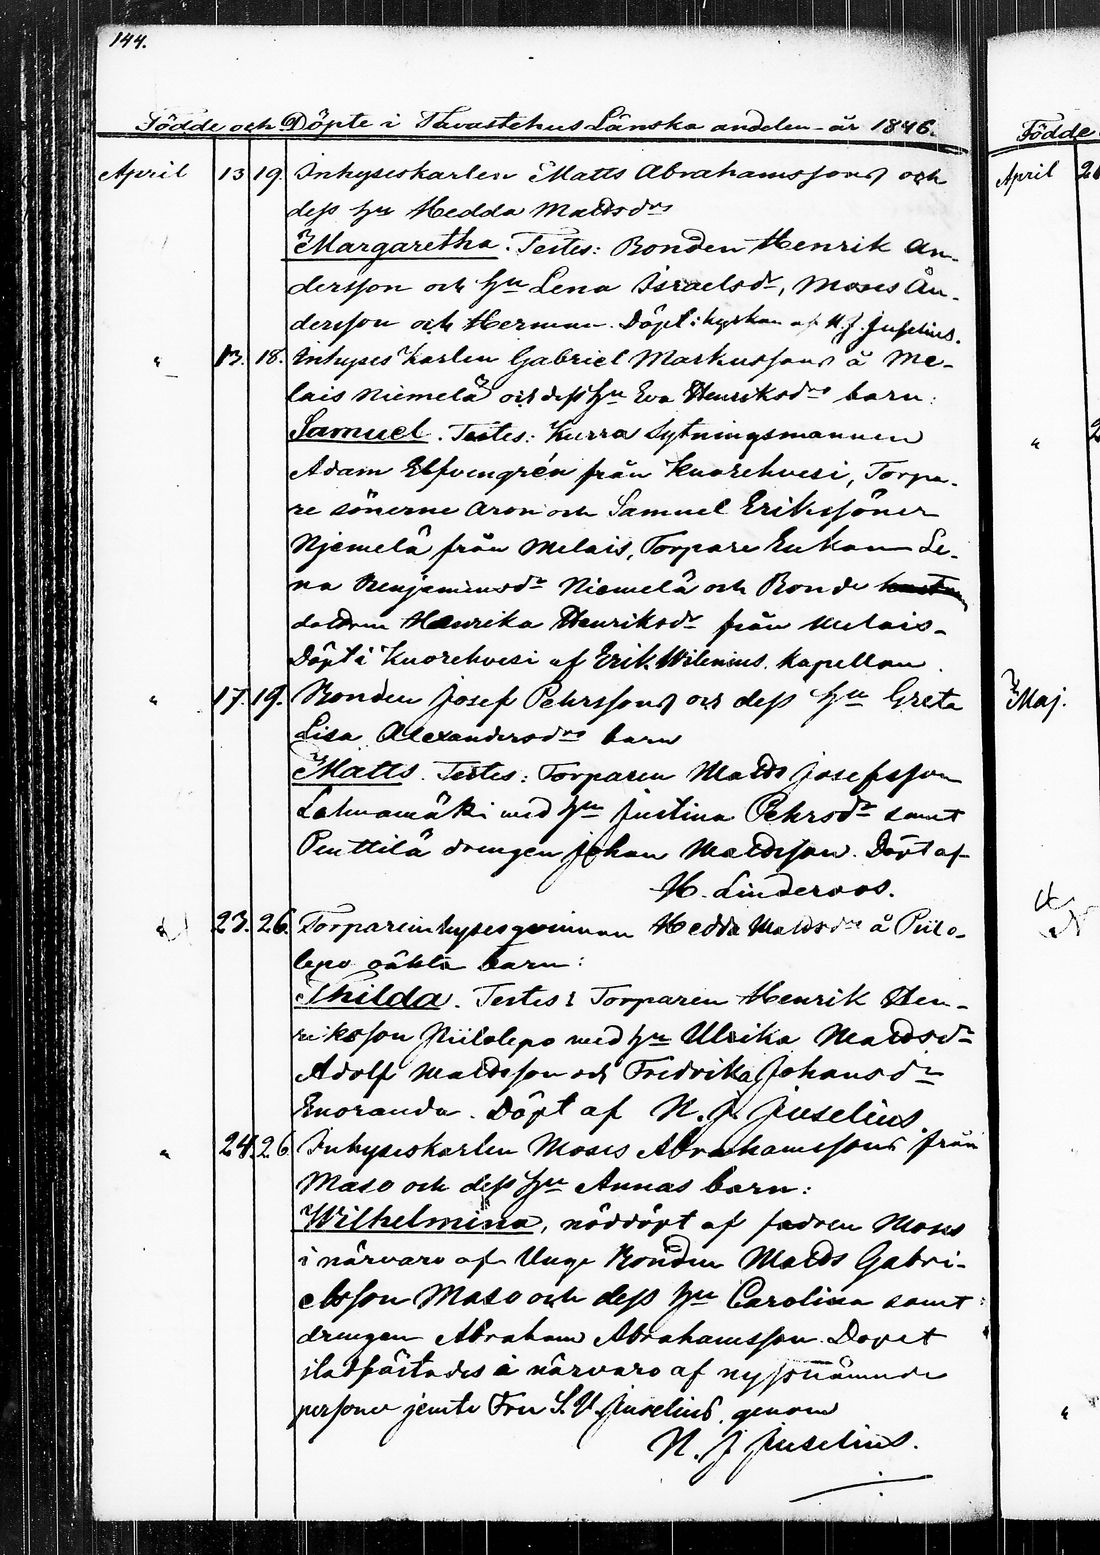 144.
Födde och Döpte i Tavastehus Länska andelen år 1846.
April 13 19. Inhyseskarlen Matts Abrahamssons och
dess hu Hedda Mattsdrs
Margaretha. Testes: Bonden Henrik An-
dersson och hu Lena Israelsdr, Moses An-
dersson och Herman. Döpt i kyrkan af N. J. Juselius.
" 13. 18. Inhyseskarlen Gabriel Markussons å Me-
lais Niemelä och dess hu Eva Henriksdrs barn:
Samuel. Testes: Kurra Sytningsmannen
Adam Elfvengrén från Kuorehvesi, Torpa-
re sönerne Aron och Samuel Erikssöner
Njemelä från Melais, Torpare Enkan Le-
na Benjaminsdr Niemelä och Bonde
dottren Henrika Henriksdr från Melais.
Döpt i Kuorehvesi af Erik Wilenius. Kapellan.
" 17. 19. Bonden Josef Pehrssons och dess hu Greta
Lisa Alexandersdrs barn
Matts. Testes: Torparen Matts Josefsson
Lahnamäki med hu Justina Pehrsdr samt
Penttilä drengen Johan Mattsson. Döpt af
H. Linderoos.
" 23. 26. Torpareinhysesqvinnan Hedda Mattsdrs å Piilo-
lepo oäkta barn:
Thilda. Testes: Torparen Henrik Hen-
riksson Piilolepo med hu Ulrika Mattsdr
Adolf Mattsson och Fredrika Johansdr
Enoranda. Döpt af N. J. Juselius.
" 24. 26. Inhyseskarlen Moses Abrahamssons från
Maso och dess hu Annas barn:
Wilhelmina, nöddöpt af fadren Moses
i närvaro af Unge Bonden Matts Gabri-
elsson Maso och dess hu Carolina samt
drengen Abraham Abrahamsson. Dopet
stadfästades i närvaro af nyssnämnde
personer jemte Fru S. U. Juselius, genom
N. J. Juselius.
Födde
April
"
Maj.
"